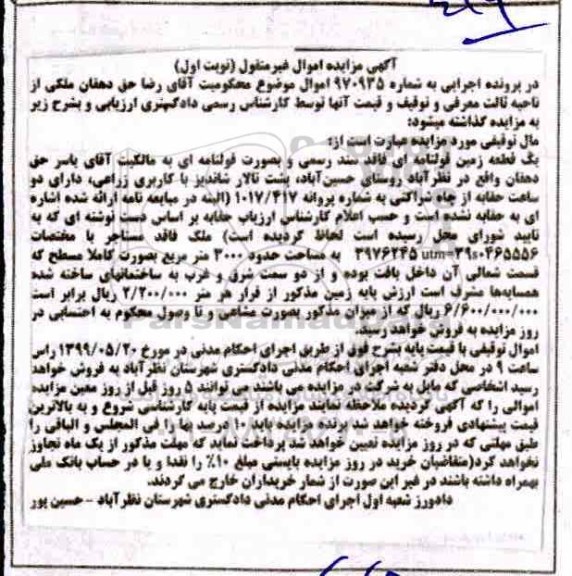 آگهی مزایده اموال غیرمنقول (نوبت اول)
در پرونده اجرایی به شماره ۹۷۰۹۳۵ اموال موضوع محکومیت آقای رضا حق دهقان ملکی از
ناحیه ثالث معرفی و توقیف و قیمت آنها توسط کارشناس رسمی دادگستری ارزیابی و بشرح زیر
به مزایده گذاشته میشود:
مال توقیفی مورد مزایده عبارت است از:
یک قطعه زمین قولنامه ای فاقد سند رسمی و بصورت قولنامه ای به مالکیت آقای یاسر حق
دهقان واقع در نظرآباد روستای حسین‌آباد، پشت تالار شاندیز با کاربری زراعی، دارای دو
ساعت حقابه از چاه شراکتی به شماره پروانه ۱۰۱۷/۴۱۷ (البته در مبایعه نامه ارائه شده اشاره
ای به حقابه نشده است و حسب اعلام کارشناس ارزیاب حقابه بر اساس دست نوشته ای که به
تایید شورای محل رسیده است لحاظ گردیده است) ملک فاقد مستاجر با مختصات
utm=۳۹s۰۴۶۵۵۵۶ ۳۹۷۶۲۴۵ به مساحت حدود ۳۰۰۰ متر مربع بصورت کاملا مسطح که
قسمت شمالی آن داخل بافت بوده و از دو سمت شرق و غرب به ساختمانهای ساخته شده
همسایه‌ها مشرف است ارزش پایه زمین مذکور از قرار هر متر ۲/۲۰۰/۰۰۰ ریال برابر است
۶/۶۰۰/۰۰۰/۰۰۰ ریال که از میزان مذکور بصورت مشاعی و تا وصول محکوم به احتسابی در
روز مزایده به فروش خواهد رسید.
اموال توقیفی با قیمت پایه بشرح فوق از طریق اجرای احکام مدنی در مورخ ۱۳۹۹/۰۵/۲۰ راس
ساعت ۹ در محل دفتر شعبه اجرای احکام مدنی دادگستری شهرستان نظرآباد به فروش خواهد
رسید اشخاصی که مایل به شرکت در مزایده می باشند می توانند ۵ روز قبل از روز معین مزایده
اموالی را که آگهی گردیده ملاحظه نمایند مزایده از قیمت پایه کارشناسی شروع و به بالاترین
قیمت پیشنهادی فروخته خواهد شد برنده مزایده باید ۱۰ درصد بها را فی المجلس و الباقی را
طبق مهلتی که در روز مزایده تعیین خواهد شد پرداخت نماید که مهلت مذکور از یک ماه تجاوز
نخواهد کرد(متقاضیان خرید در روز مزایده بایستی مبلغ ۱۰٪ را نقدا و یا در حساب بانک ملی
بهمراه داشته باشند در غیر این صورت از شمار خریداران خارج می گردند.
دادورز شعبه اول اجرای احکام مدنی دادگستری شهرستان نظرآباد - حسین پور